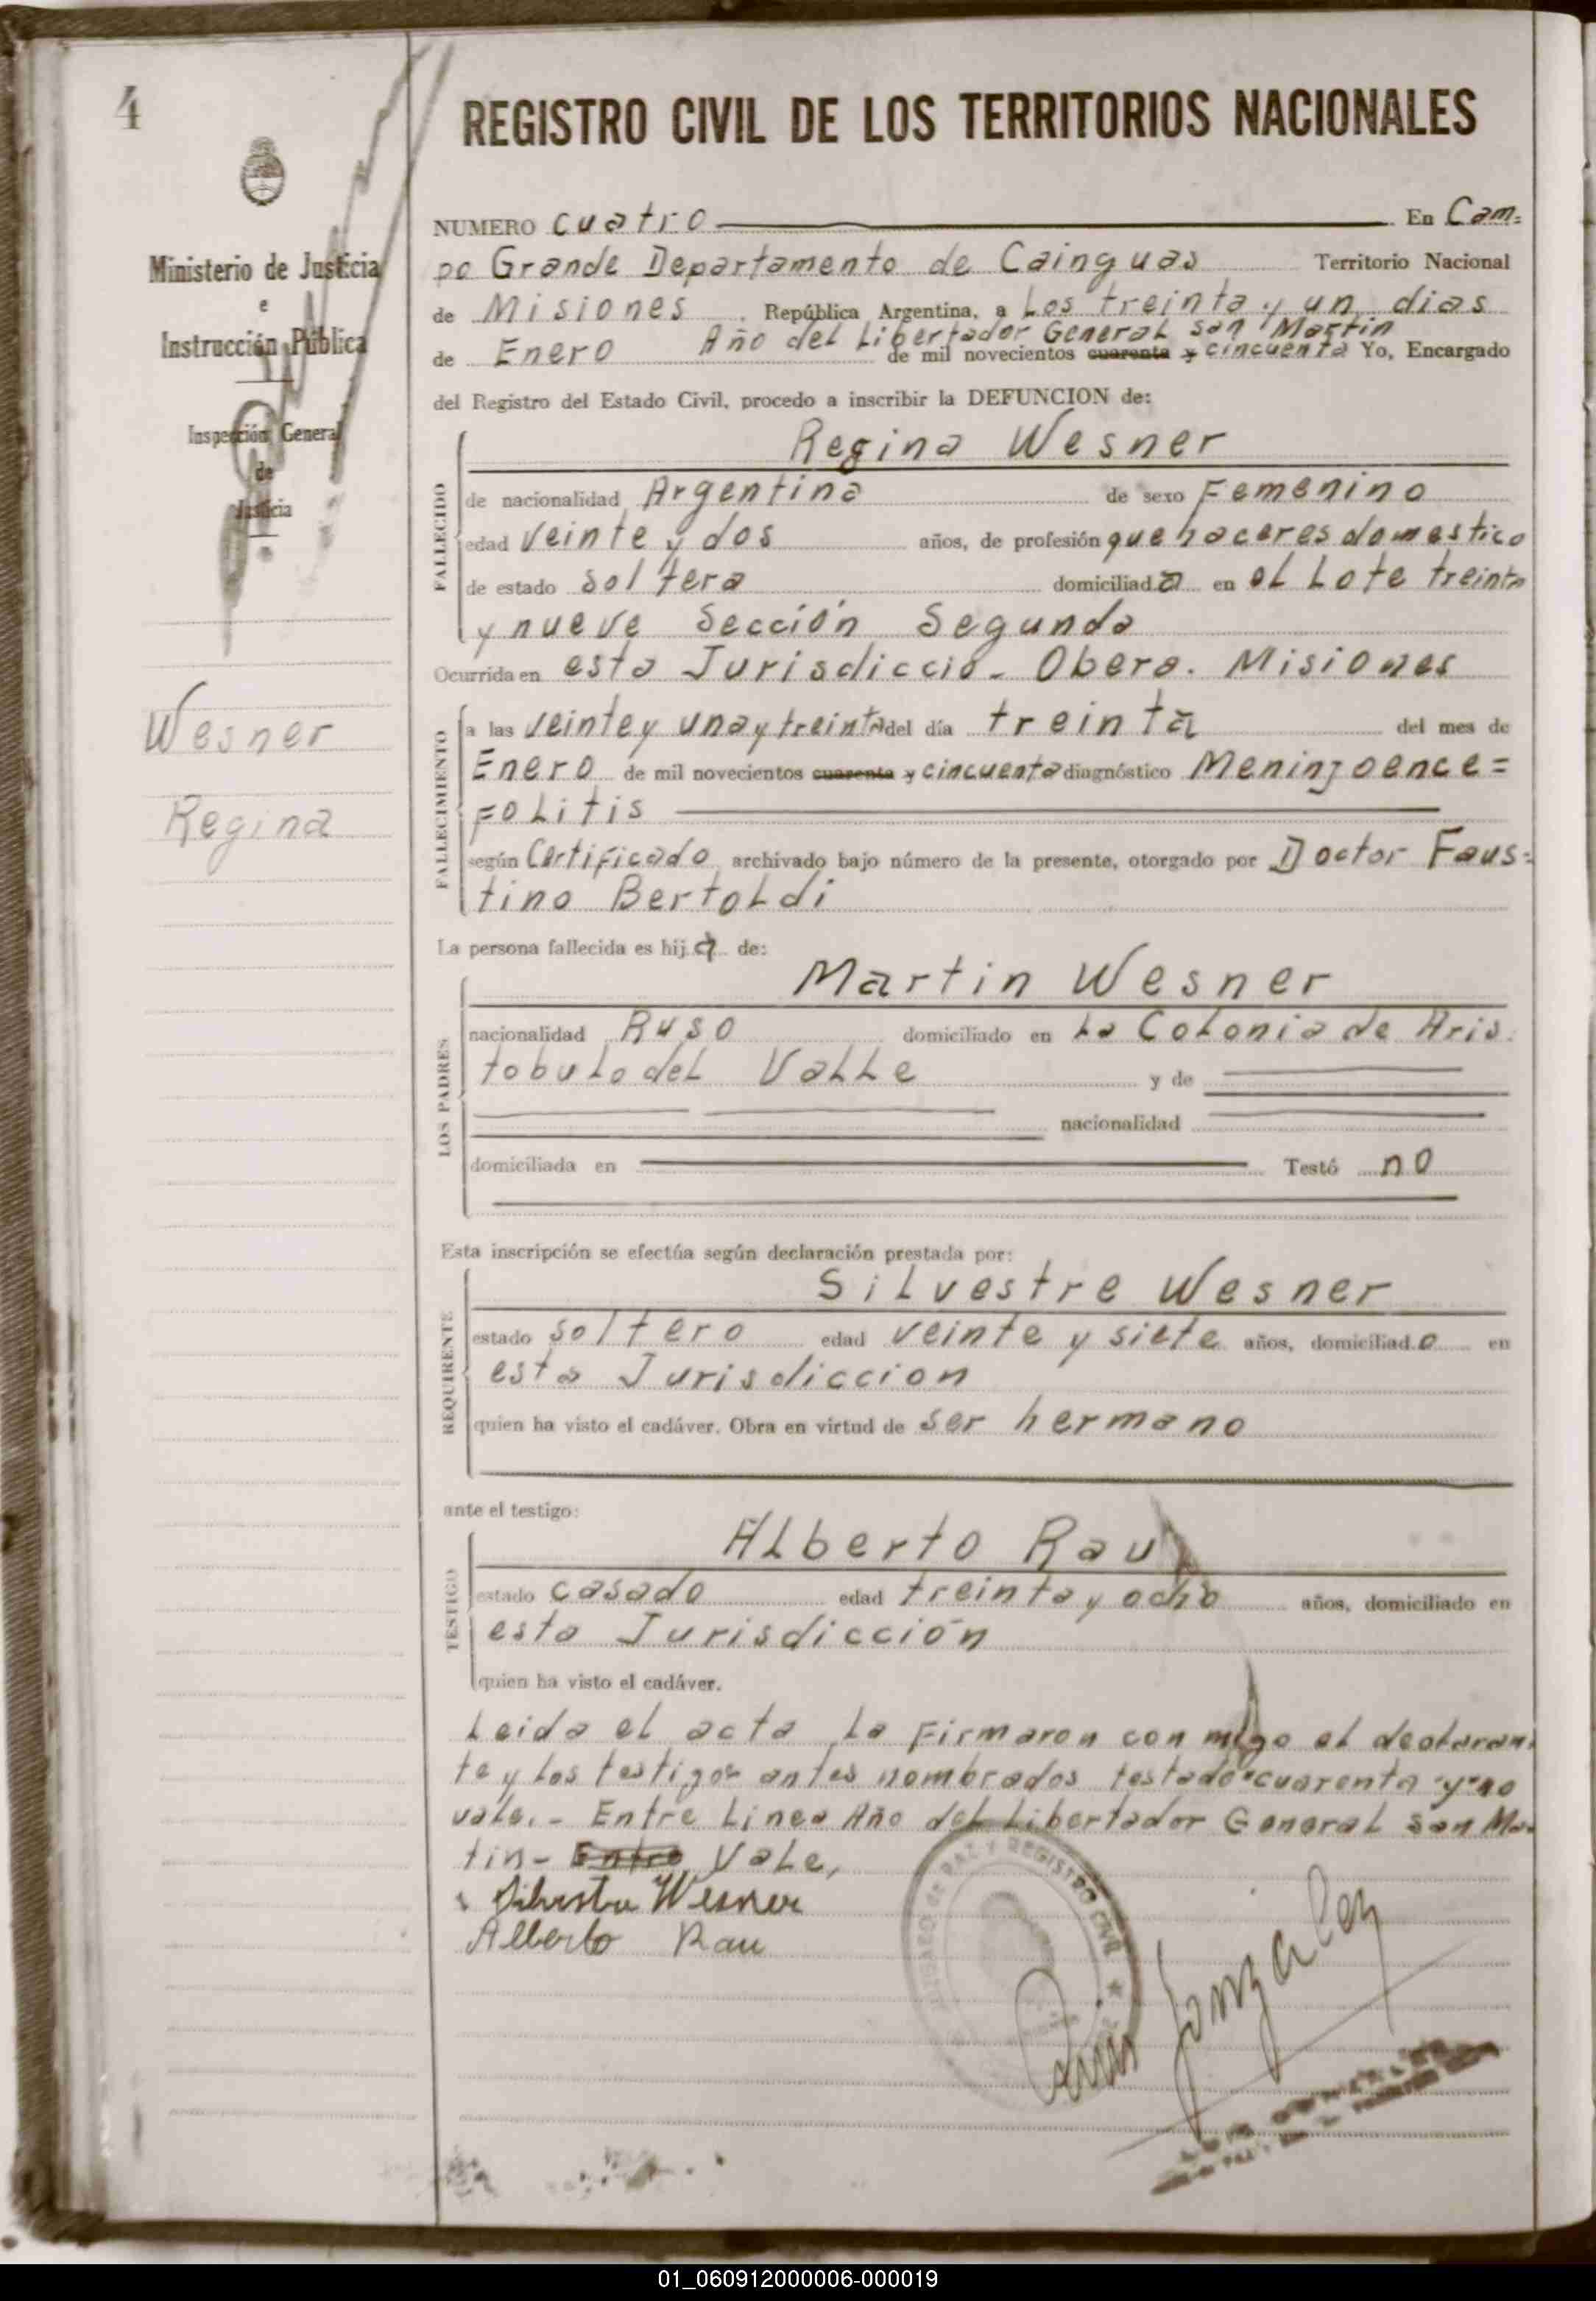 4
REGISTRO CIVIL DE LOS TERRITORIOS NACIONALES
Ministerio de Justicia
e
Instrucción Pública
Inspección General
de
Justicia
Wesner
Regina
NUMERO cuatro En Cam=
po Grande Departamento de Cainguas Territorio Nacional
de Misiones . República Argentina, a Los treinta y un dias
Año del Libertador General san Martin
de Enero de mil novecientos cuarenta y cincuenta Yo, Encargado
del Registro del Estado Civil, procedo a inscribir la DEFUNCION de:
FALLECIDO
Regina Wesner
de nacionalidad Argentina de sexo Femenino
edad veinte y dos años, de profesión quehaceres domestico
de estado soltera domiciliada en el Lote treinta
y nueve Sección Segunda
Ocurrida en esta Jurisdiccio- Obera. Misiones
FALLECIMIENTO
a las veinte y una y treinta del día treinta del mes de
Enero de mil novecientos cuarenta y cincuenta diagnóstico Meningoence=
Folitis
según Certificado archivado bajo número de la presente, otorgado por Doctor Faus=
tino Bertoldi
La persona fallecida es hija de:
LOS PADRES
Martin Wesner
nacionalidad Ruso domiciliado en La Colonia de Aris
tobulo del Valle y de
nacionalidad
domiciliada en Testó no
Esta inscripción se efectúa según declaración prestada por:
REQUIRENTE
Silvestre Wesner
estado soltero edad veinte y siete años, domiciliado en
esta Jurisdiccion
quien ha visto el cadáver. Obra en virtud de ser hermano
ante el testigo:
TESTIGO
Alberto Rau
estado casado edad treinta y ocho años, domiciliado en
esta Jurisdicción
quien ha visto el cadáver.
Leida el acta La Firmaron con migo el declaran
te y los testigos antes nombrados testado "cuarenta "y" no
vale.- Entre Linea Año del Libertador General san Mar
tin- Entre Vale,
Silvestre Wesner
Alberto Rau
PAZ Y REGISTRO CIVIL
Luis Gonzalez
01_060912000006-000019